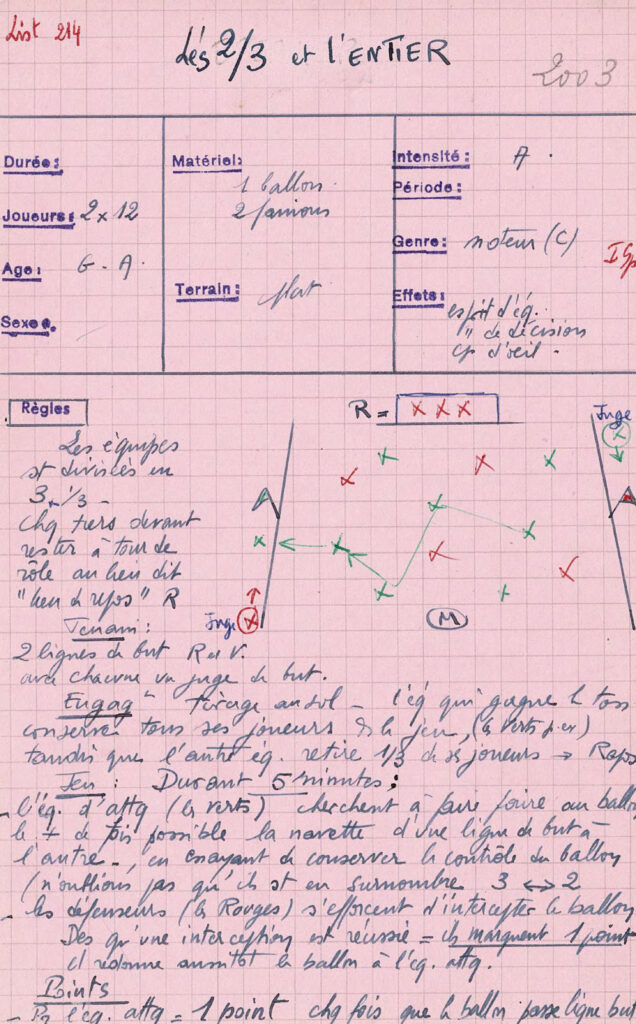 List 214
Lés 2/3 et l'ENTIER
2003
Durée:
Joueurs: 2 x 12
Age: G - A.
Sexe:
Matériel:
1 ballon.
2 fanions
Terrain: plat
Intensité: A.
Période:
Genre: moteur (C)
Effets: esprit d'éq.
" de décision
cp d'oeil.
Règles
R = x x x
Juge
Les équipes
st divisées en
3 1/3 -
Chq tiers devant
rester à tour de
rôle au lieu dit
"lieu de repos" R
Juge
M
Terrain:
2 lignes de but R et V.
avec chacune un juge de but.
Engagt tirage au sol - l'éq qui gagne le toss
conserve tous ses joueurs ds le jeu, (les verts p.ex)
tandis que l'autre éq. retire 1/3 de ses joueurs → Repos
Jeu: Durant 5 minutes;
- l'éq. d'attq (les verts) cherchent à faire faire au ballon
le + de fois possible la navette d'une ligne de but à
l'autre -, en essayant de conserver le contrôle du ballon
(n'oublions pas qu'ils st en surnombre 3 ↔ 2
- les défenseurs (les Rouges) s'efforcent d'intercepter le ballon
Dès qu'une interception est réussie = ils marquent 1 point
et redonne aussitôt le ballon à l'éq. attq.
Points
- Pr l'éq. attq = 1 point chq fois que le ballon passe ligne but